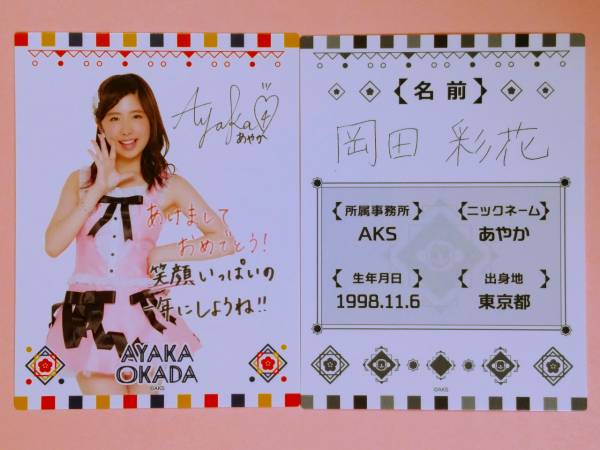 Ayaka
4
あやか
あけまして
おめでとう！
笑顔いっぱいの
一年にしようね!!
AYAKA
OKADA
©AKS
【名前】
岡田 彩花
【所属事務所】
AKS
【ニックネーム】
あやか
【生年月日】
1998.11.6
【出身地】
東京都
©AKS